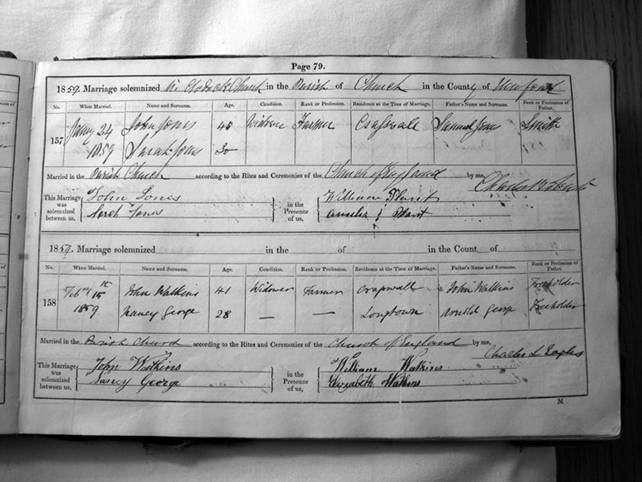 Page 79.
1859. Marriage solemnized in Clodock Church in the Parish of Church in the County of
No. When Married. Name and Surname. Age. Condition. Rank or Profession. Residence at the Time of Marriage. Father's Name and Surname. Rank or Profession of Father.
157 24 1859 John Jones 45 Widower Farmer Craswall Samuel Jones Smith
Sarah Jones 30
Married in the Parish Church according to the Rites and Ceremonies of the Church of England by me,
This Marriage was solemnized between us, John Jones in the Presence of us, William
Sarah Jones
185 . Marriage solemnized in the of in the Count of
No. When Married. Name and Surname. Age. Condition. Rank or Profession. Residence at the Time of Marriage. Father's Name and Surname. Rank or Profession of Father.
158 Feby 15th 1859 John Watkins 41 Widower Farmer Craswall John Watkins Freeholder
Nancy George 28 — — Longtown Arnold George Freeholder
Married in the Parish Church according to the Rites and Ceremonies of the Church of England by me, Charles L
This Marriage was solemnized between us, John Watkins in the Presence of us, William Watkins
Nancy George Elizabeth Watkins
M